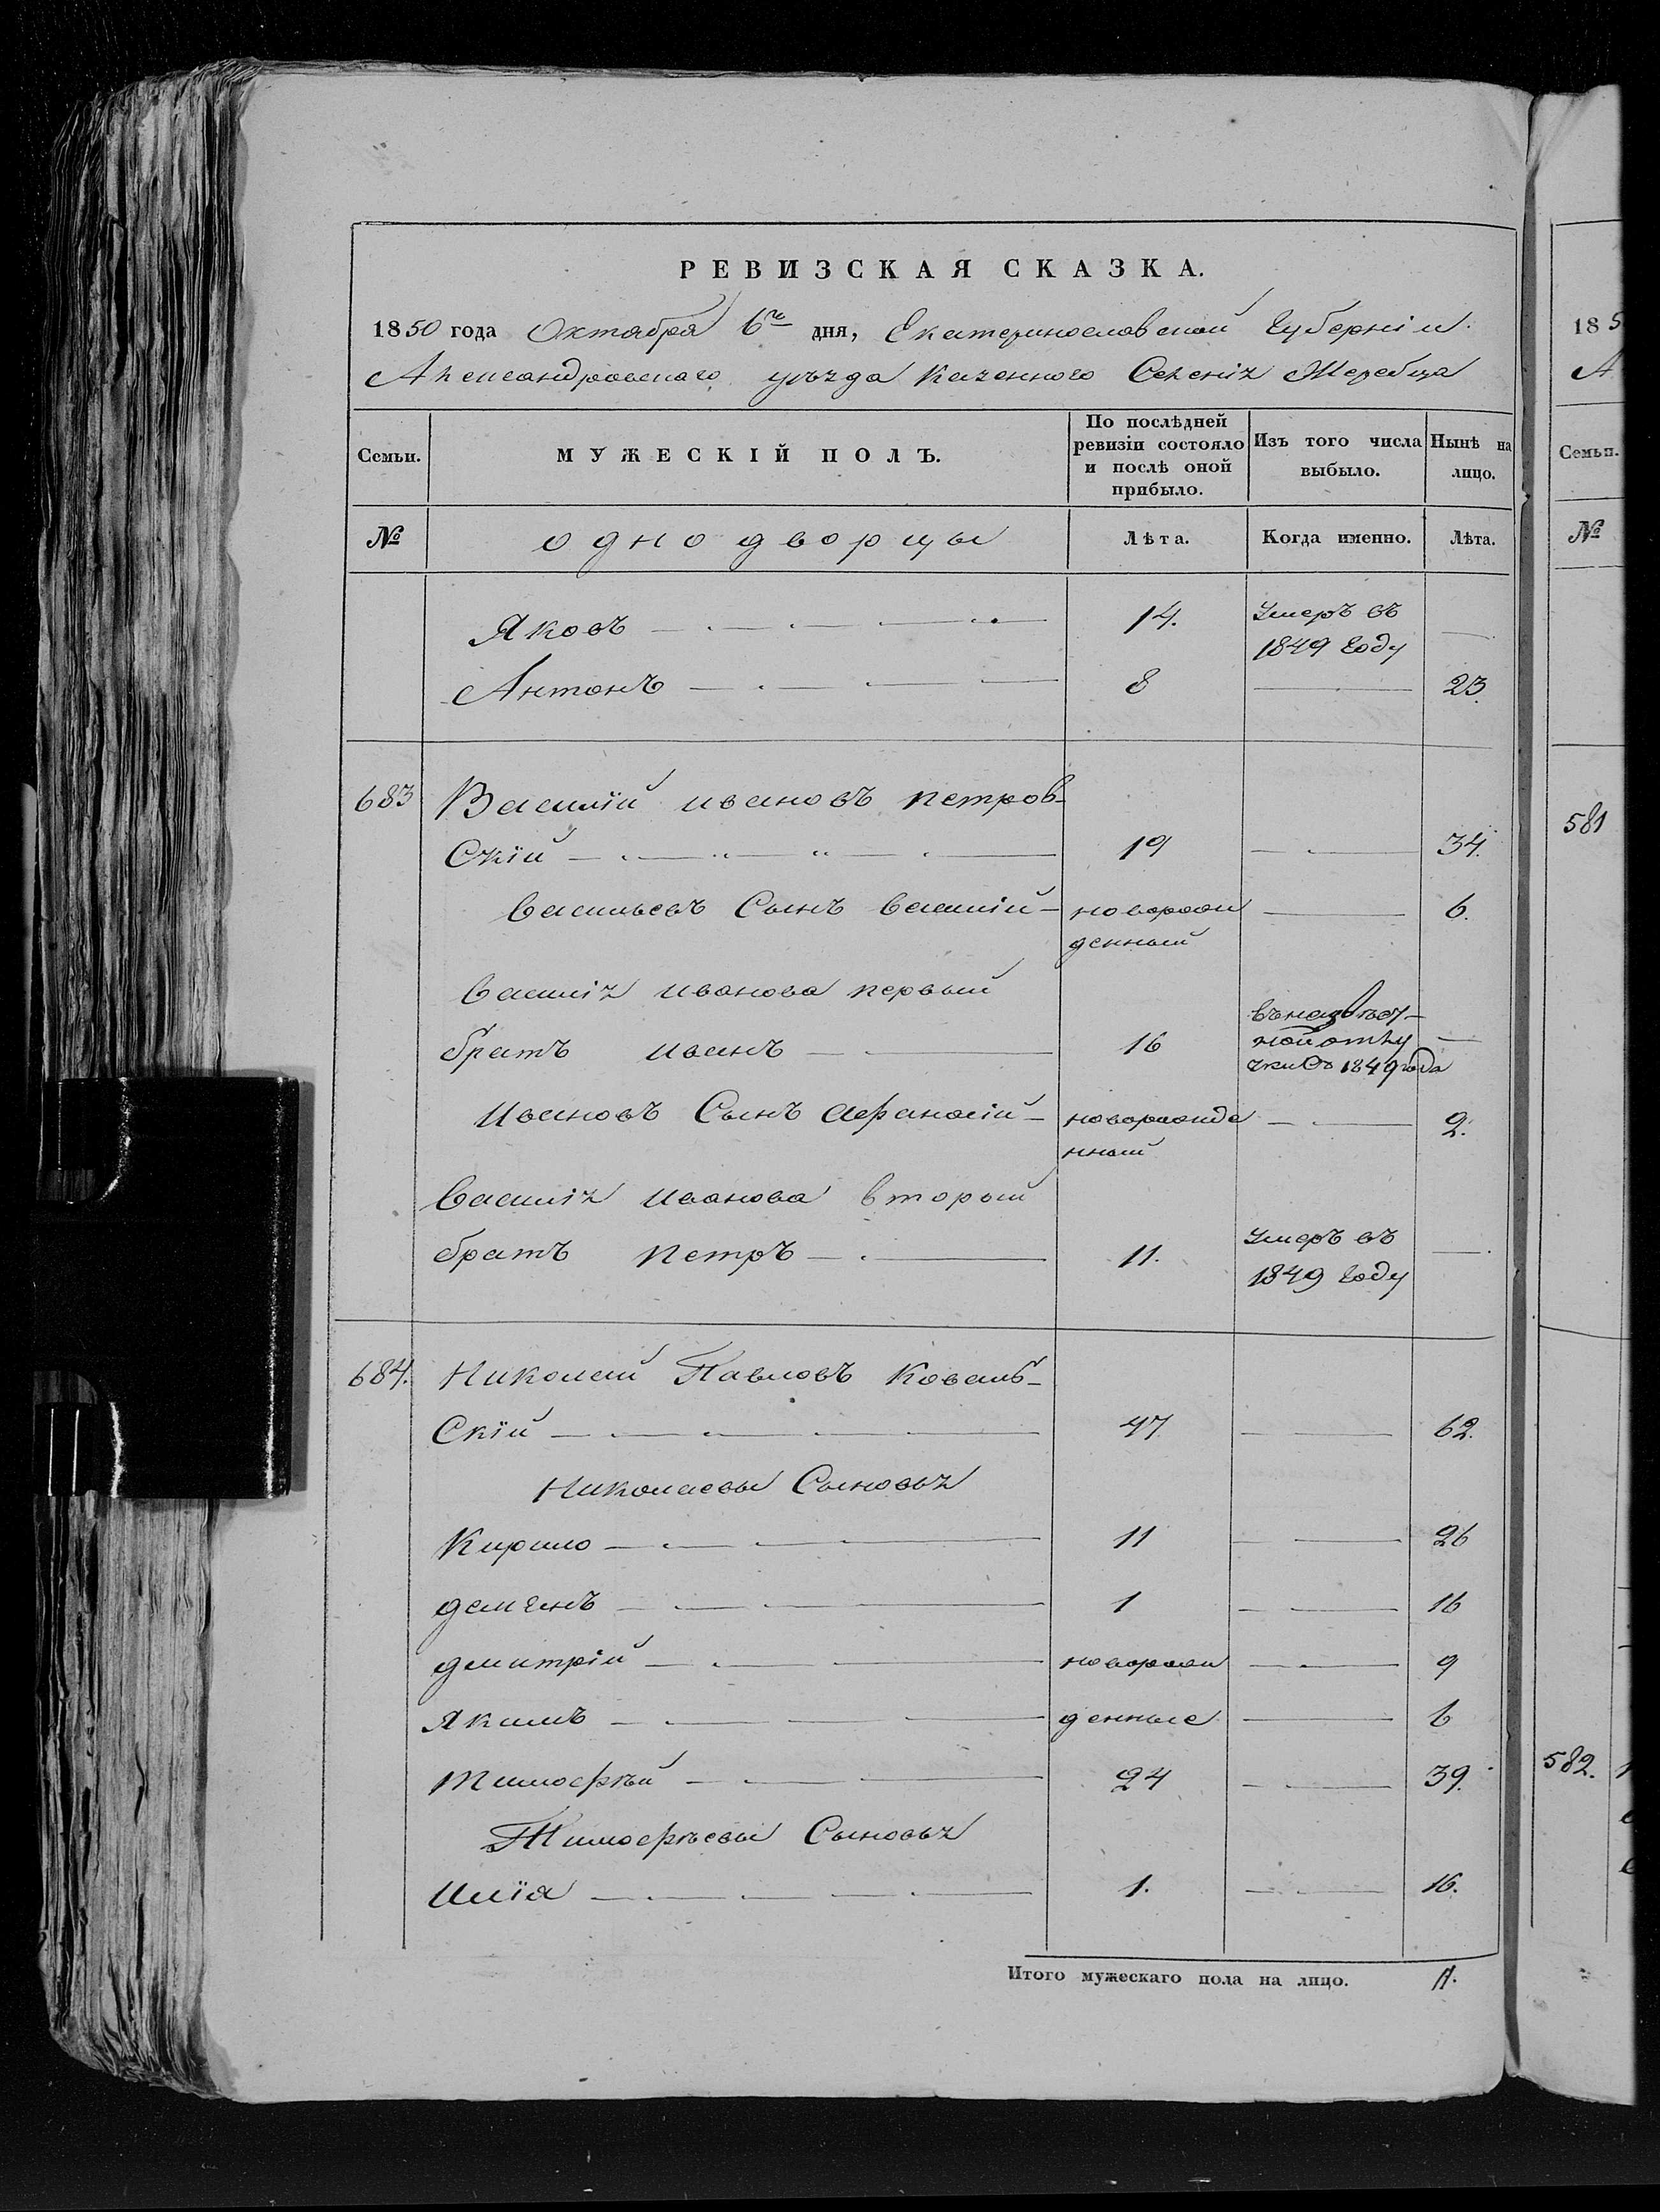 РЕВИЗСКАЯ СКАЗКА.
1850 года Октября 6го дня, Екатеринославской Губерніи
Александровскаго уѣзда Казенного Селенія Жеребца
Семьи. МУЖЕСКІЙ ПОЛЪ. По послѣдней ревизіи состояло и послѣ оной прибыло. Изъ того числа выбыло. Нынѣ на лицо.
№ однодворцы Лѣта. Когда именно. Лѣта.
Яковъ 14. Умеръ въ 1849 Году
Антонъ 8 23.
683 Василій ивановъ петров-
Скій 19 34.
Васильевъ Сынъ василій новорож
денный 6.
Василія иванова первый
братъ иванъ 16 1849 года
Ивановъ Сынъ афанасій новорожде
нный 2.
Василія иванова второй
братъ петръ 11. Умеръ въ 1849 Году
684. Николай Павловъ Коваль-
Скій 47 62.
Николаевы Сыновья
Кирило 11 26
демянъ 1 16
дмитрій новорож 9
якимъ денные 6
тимофѣй 24 39.
Тимофѣевы Сыновья
Илія 1. 16.
Итого мужескаго пола на лицо. 11.
185
А
Семьи.
№
581
582.